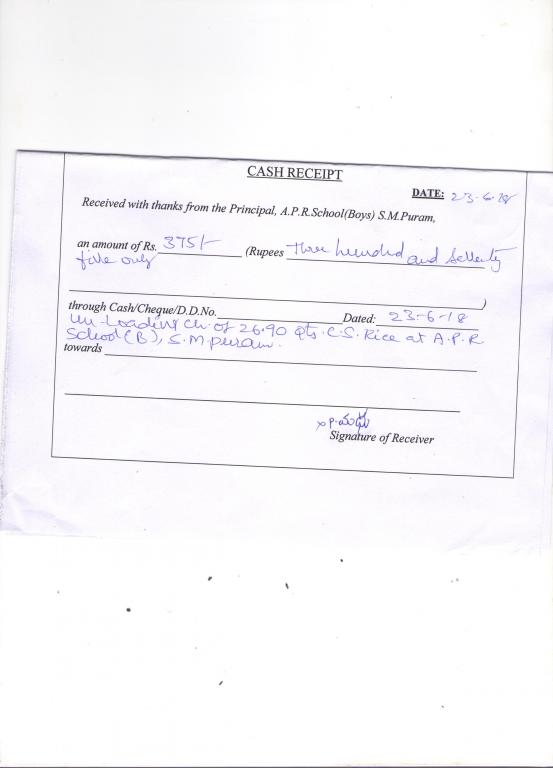 CASH RECEIPT
DATE: 23-6-18
Received with thanks from the Principal, A.P.R.School(Boys) S.M.Puram,
an amount of Rs. 375/- (Rupees Three hundred and Seventy
five only
)
through Cash/Cheque/D.D.No. Dated: 23-6-18
Un-Loading Ch. of 26.90 Qts. C.S. Rice at A.P.R
School(B), S.M.puram.
towards
x P.
Signature of Receiver